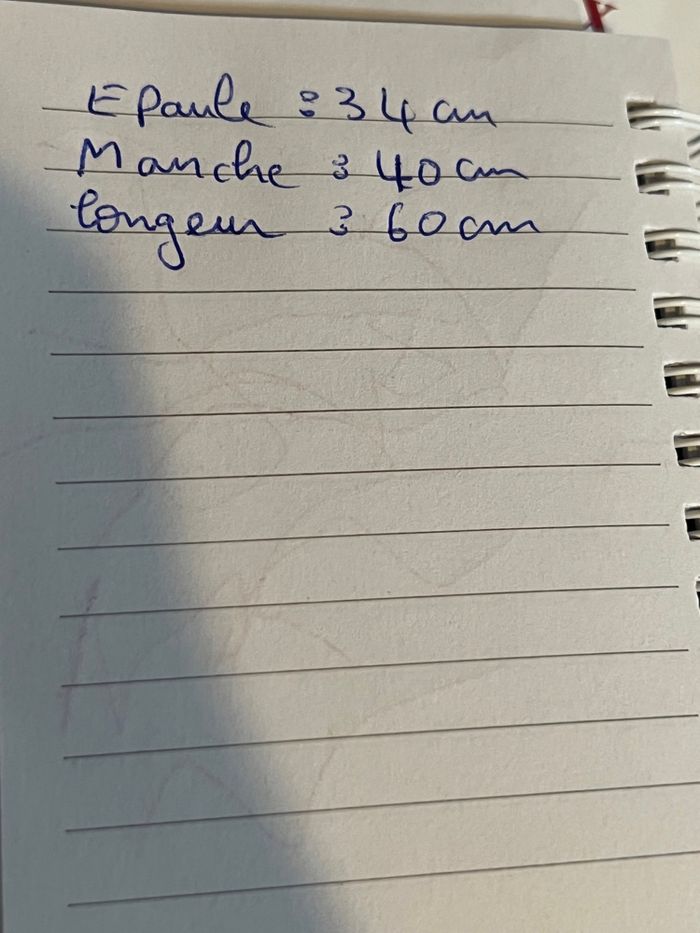 Epaule : 34 cm
Manche : 40 cm
longeur : 60 cm